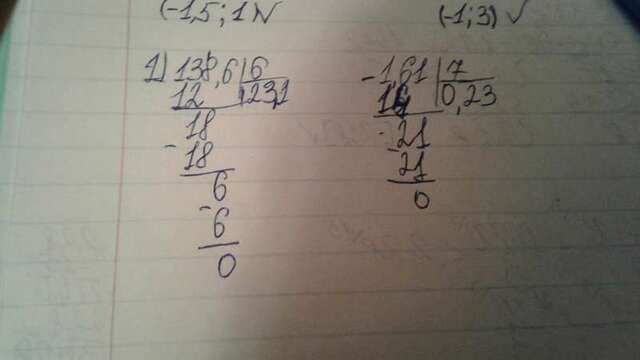 (-1,5 ; 1) (-1; 3) ✓
1) 138,6 | 6 - 1,61 | 7
12 | 23,1 14 | 0,23
18 - 21
- 18 21
6 0
- 6
0